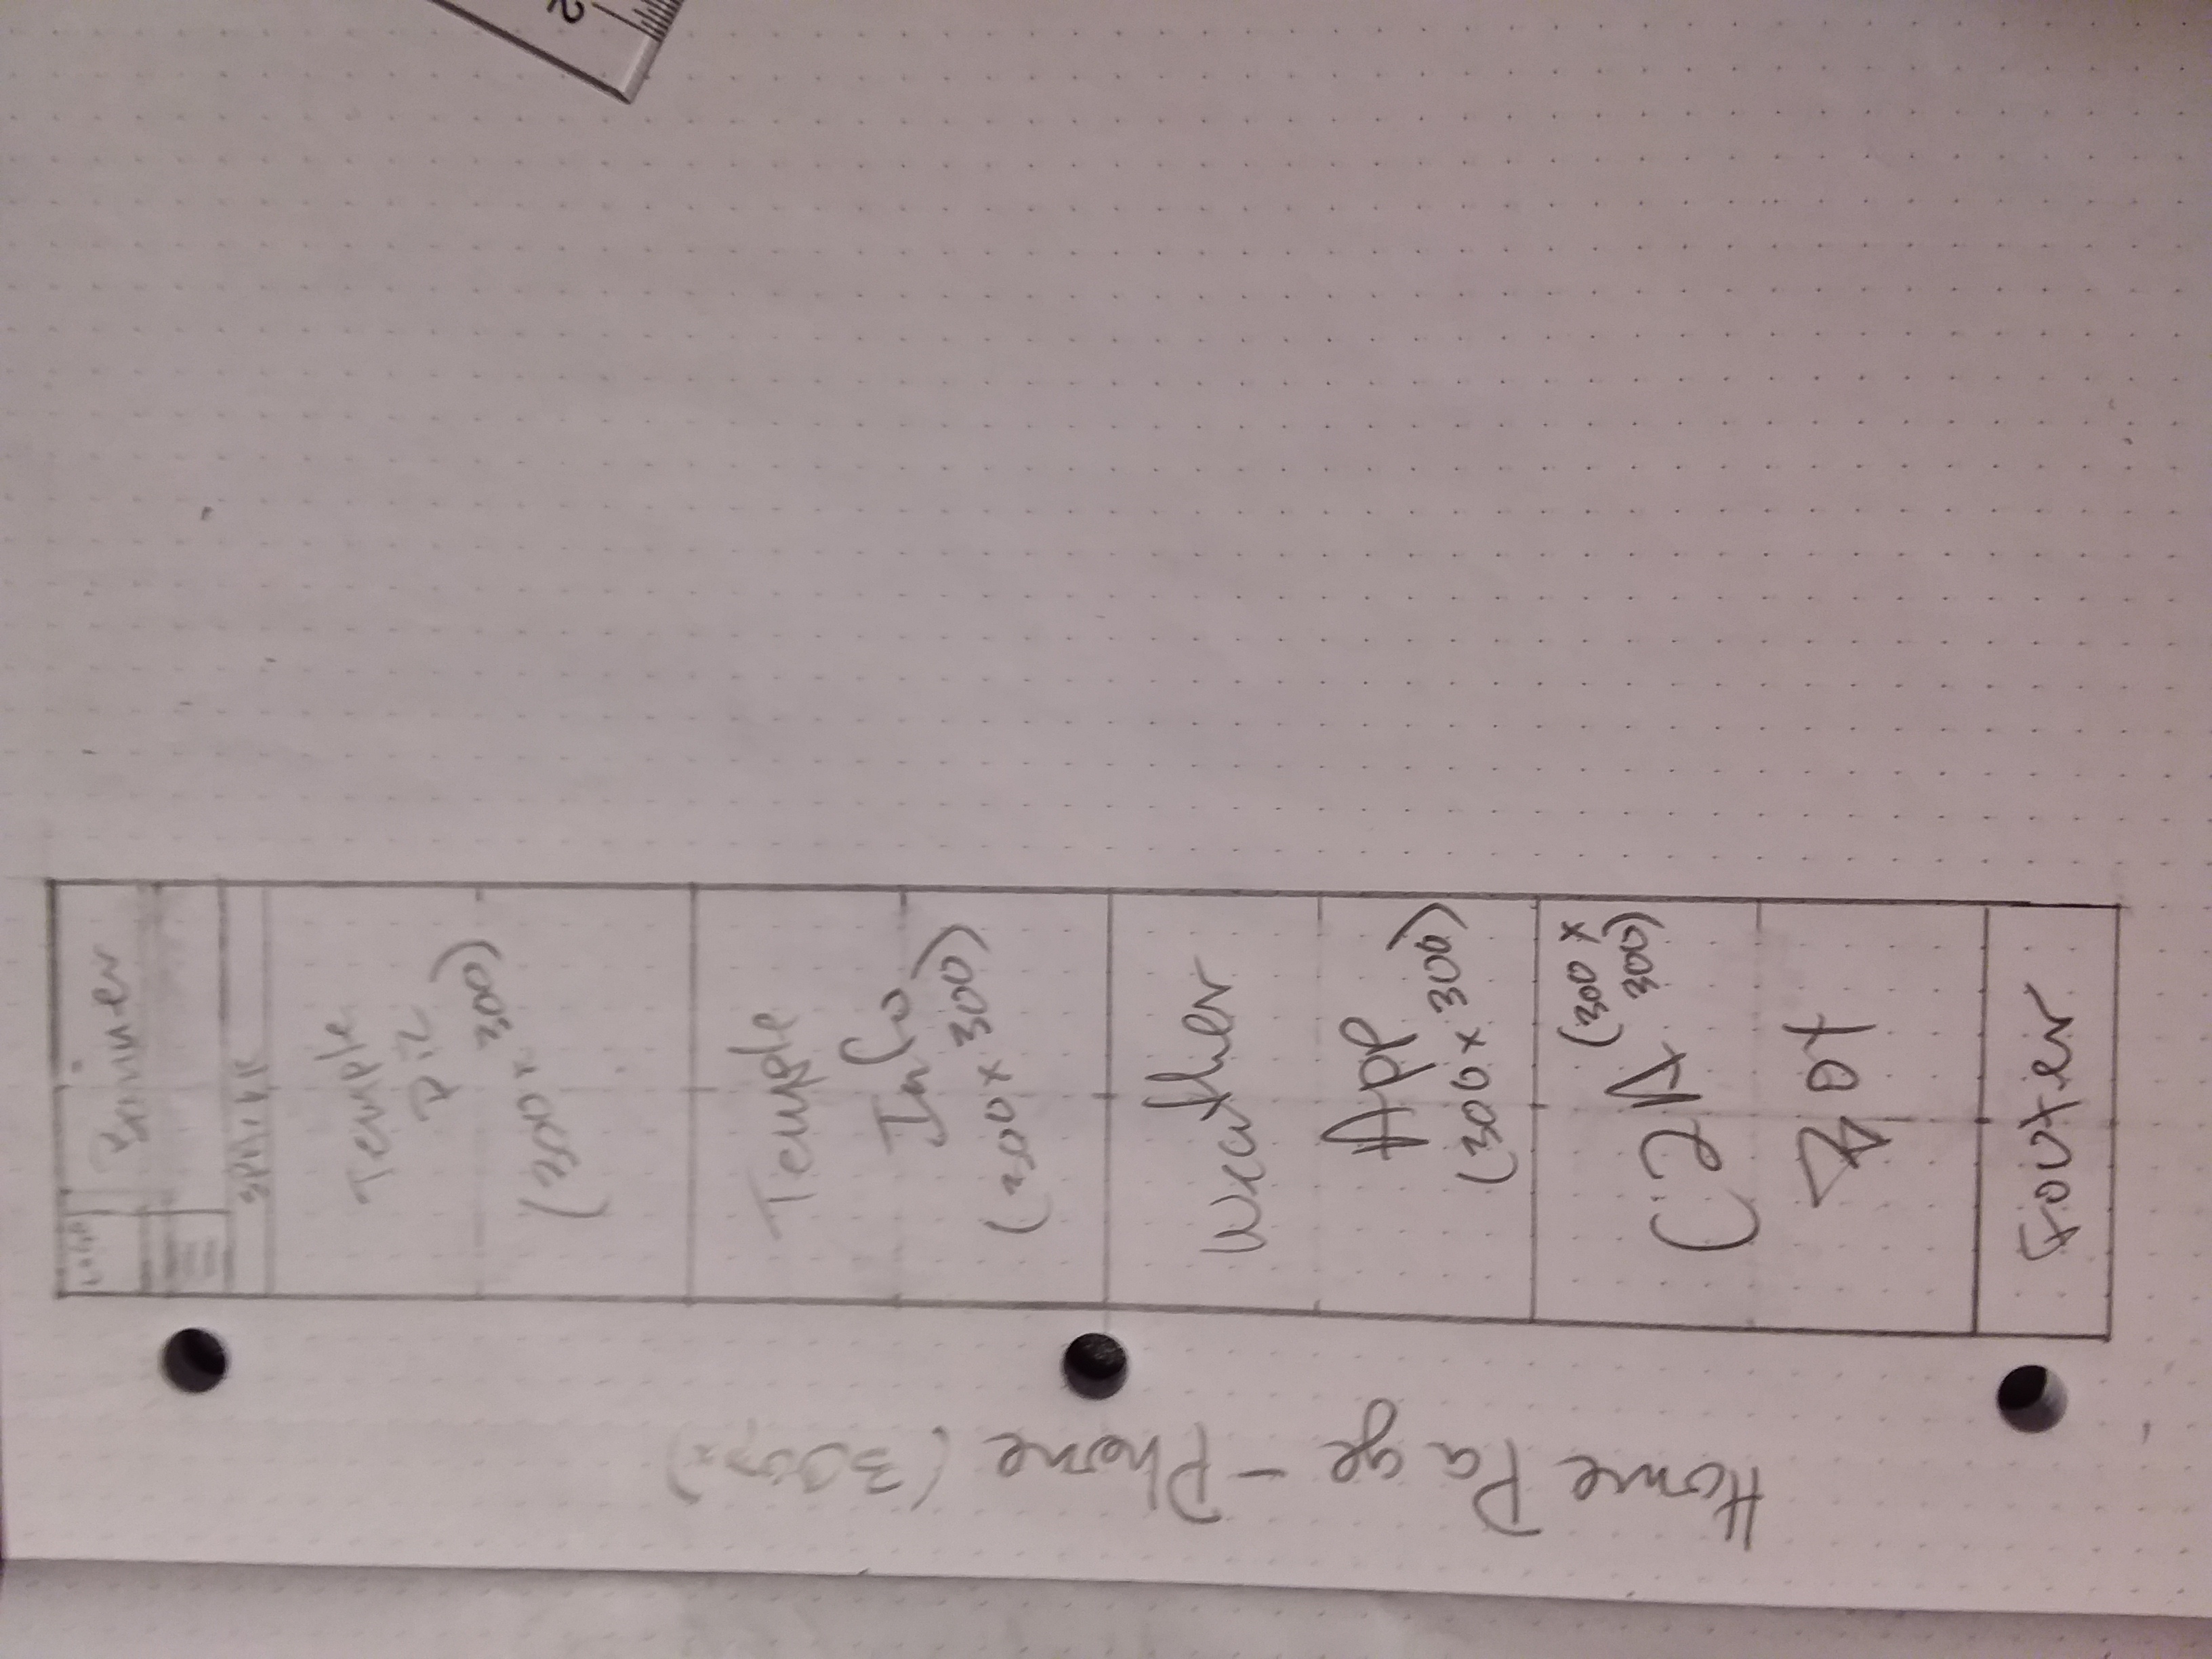 Home Page - Phone (300px)
LOGO
Banner
Temple
Pic
(300 x 300)
Temple
Info
(300 x 300)
Weather
App
(300 x 300)
C2A (300 x
300)
Box
Footer